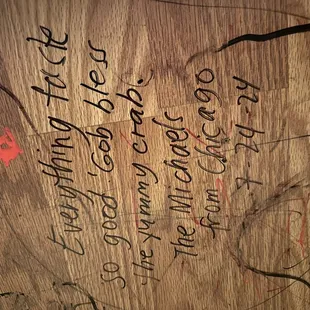 Everything taste
so good 'Gob bless
the yummy crab.
The Michaels
from Chicago
7-24-24